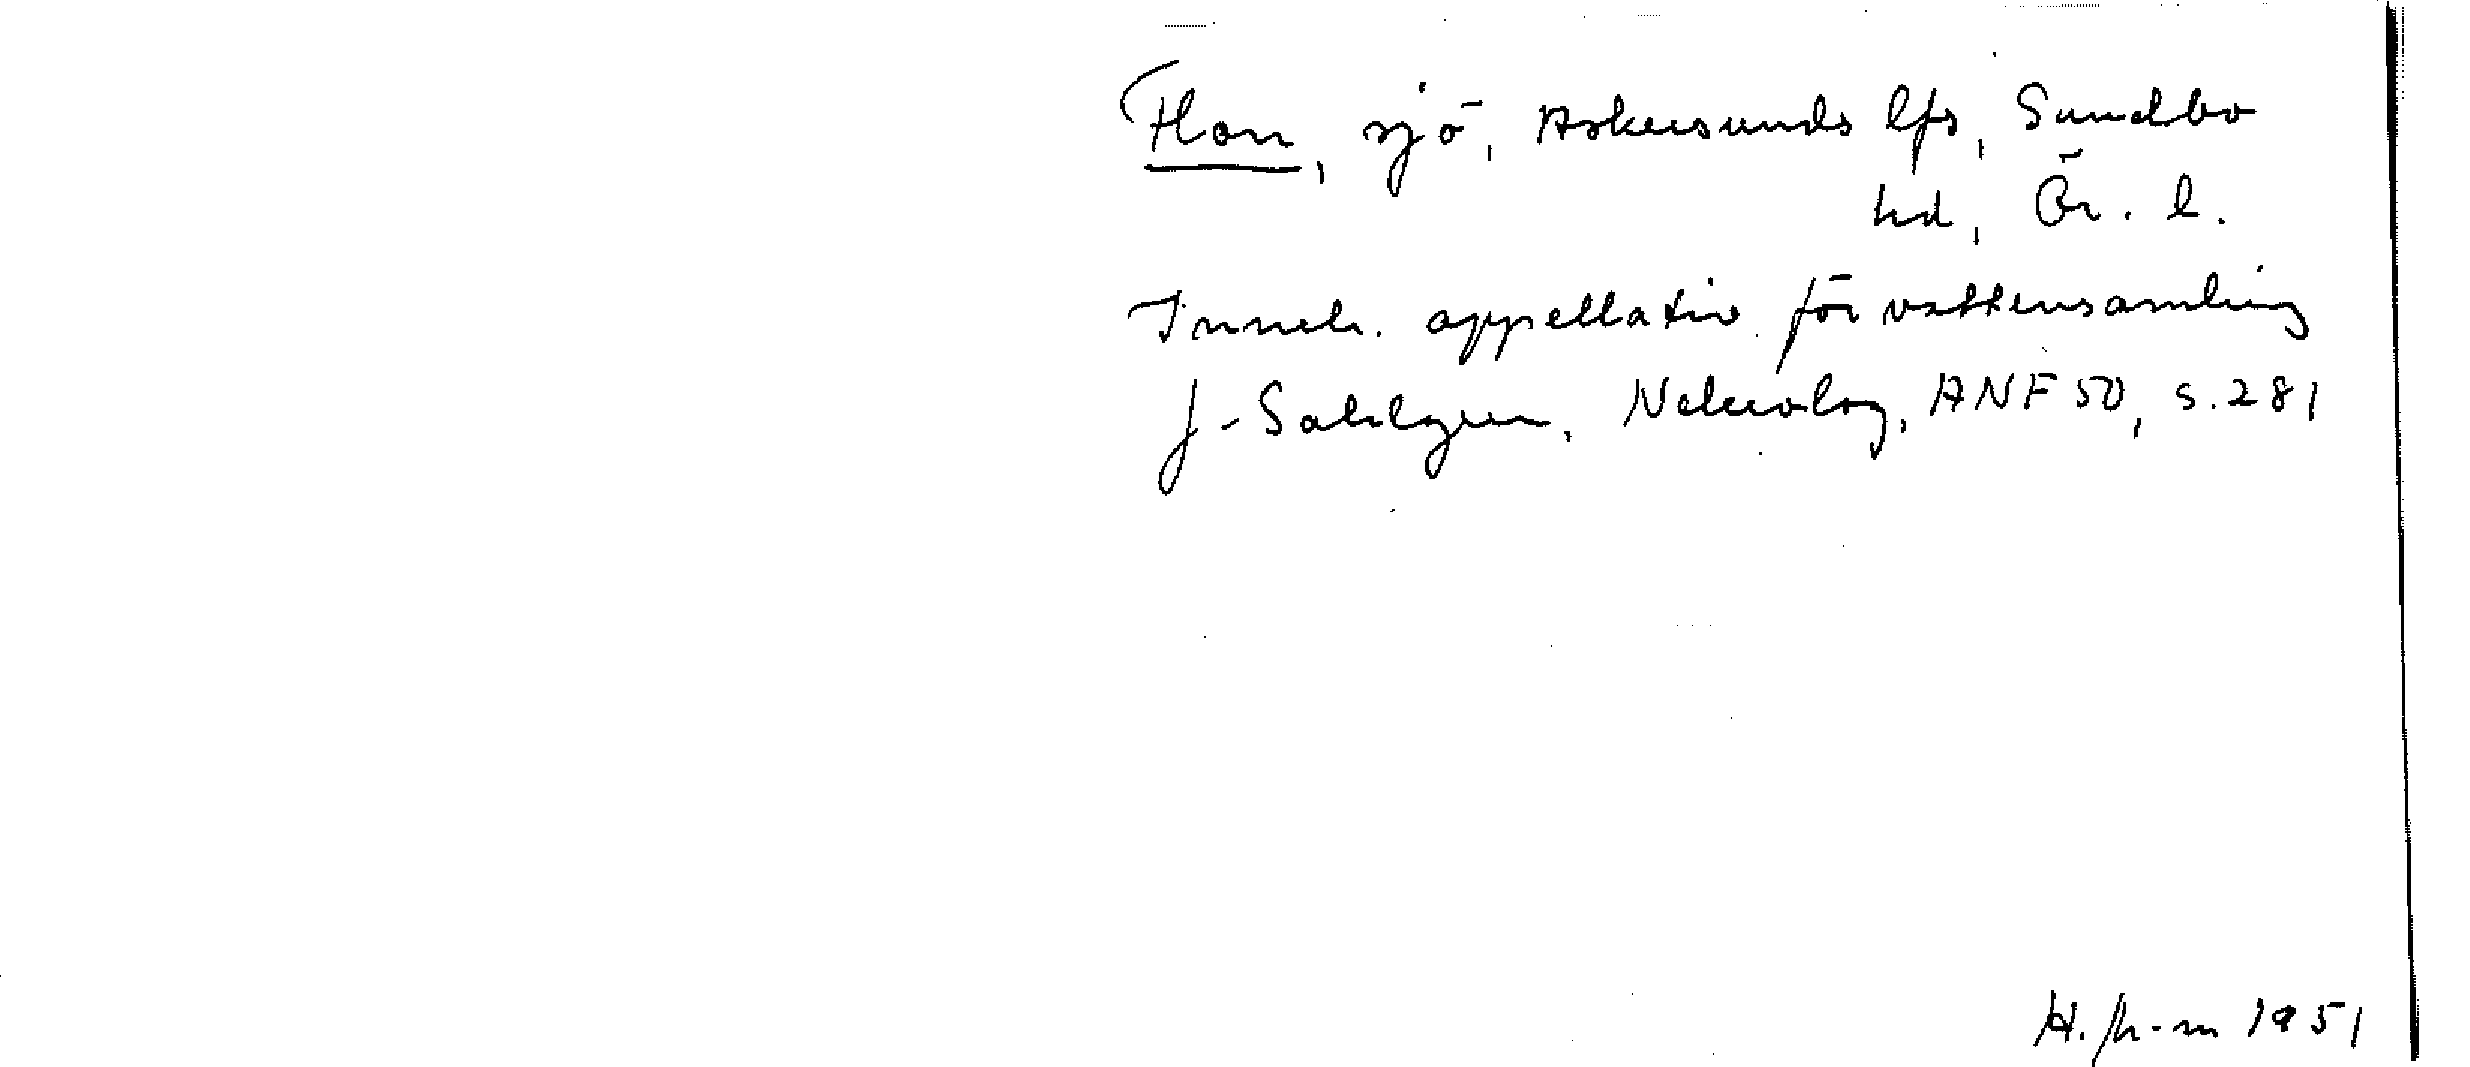 Flon, sjö, Askersunds lfs, Sundbo
hd, Ör. l.
Inneh. appellativ för vattensamling
J. Sahlgren, Nekrolog, ANF 50, s. 281
1951